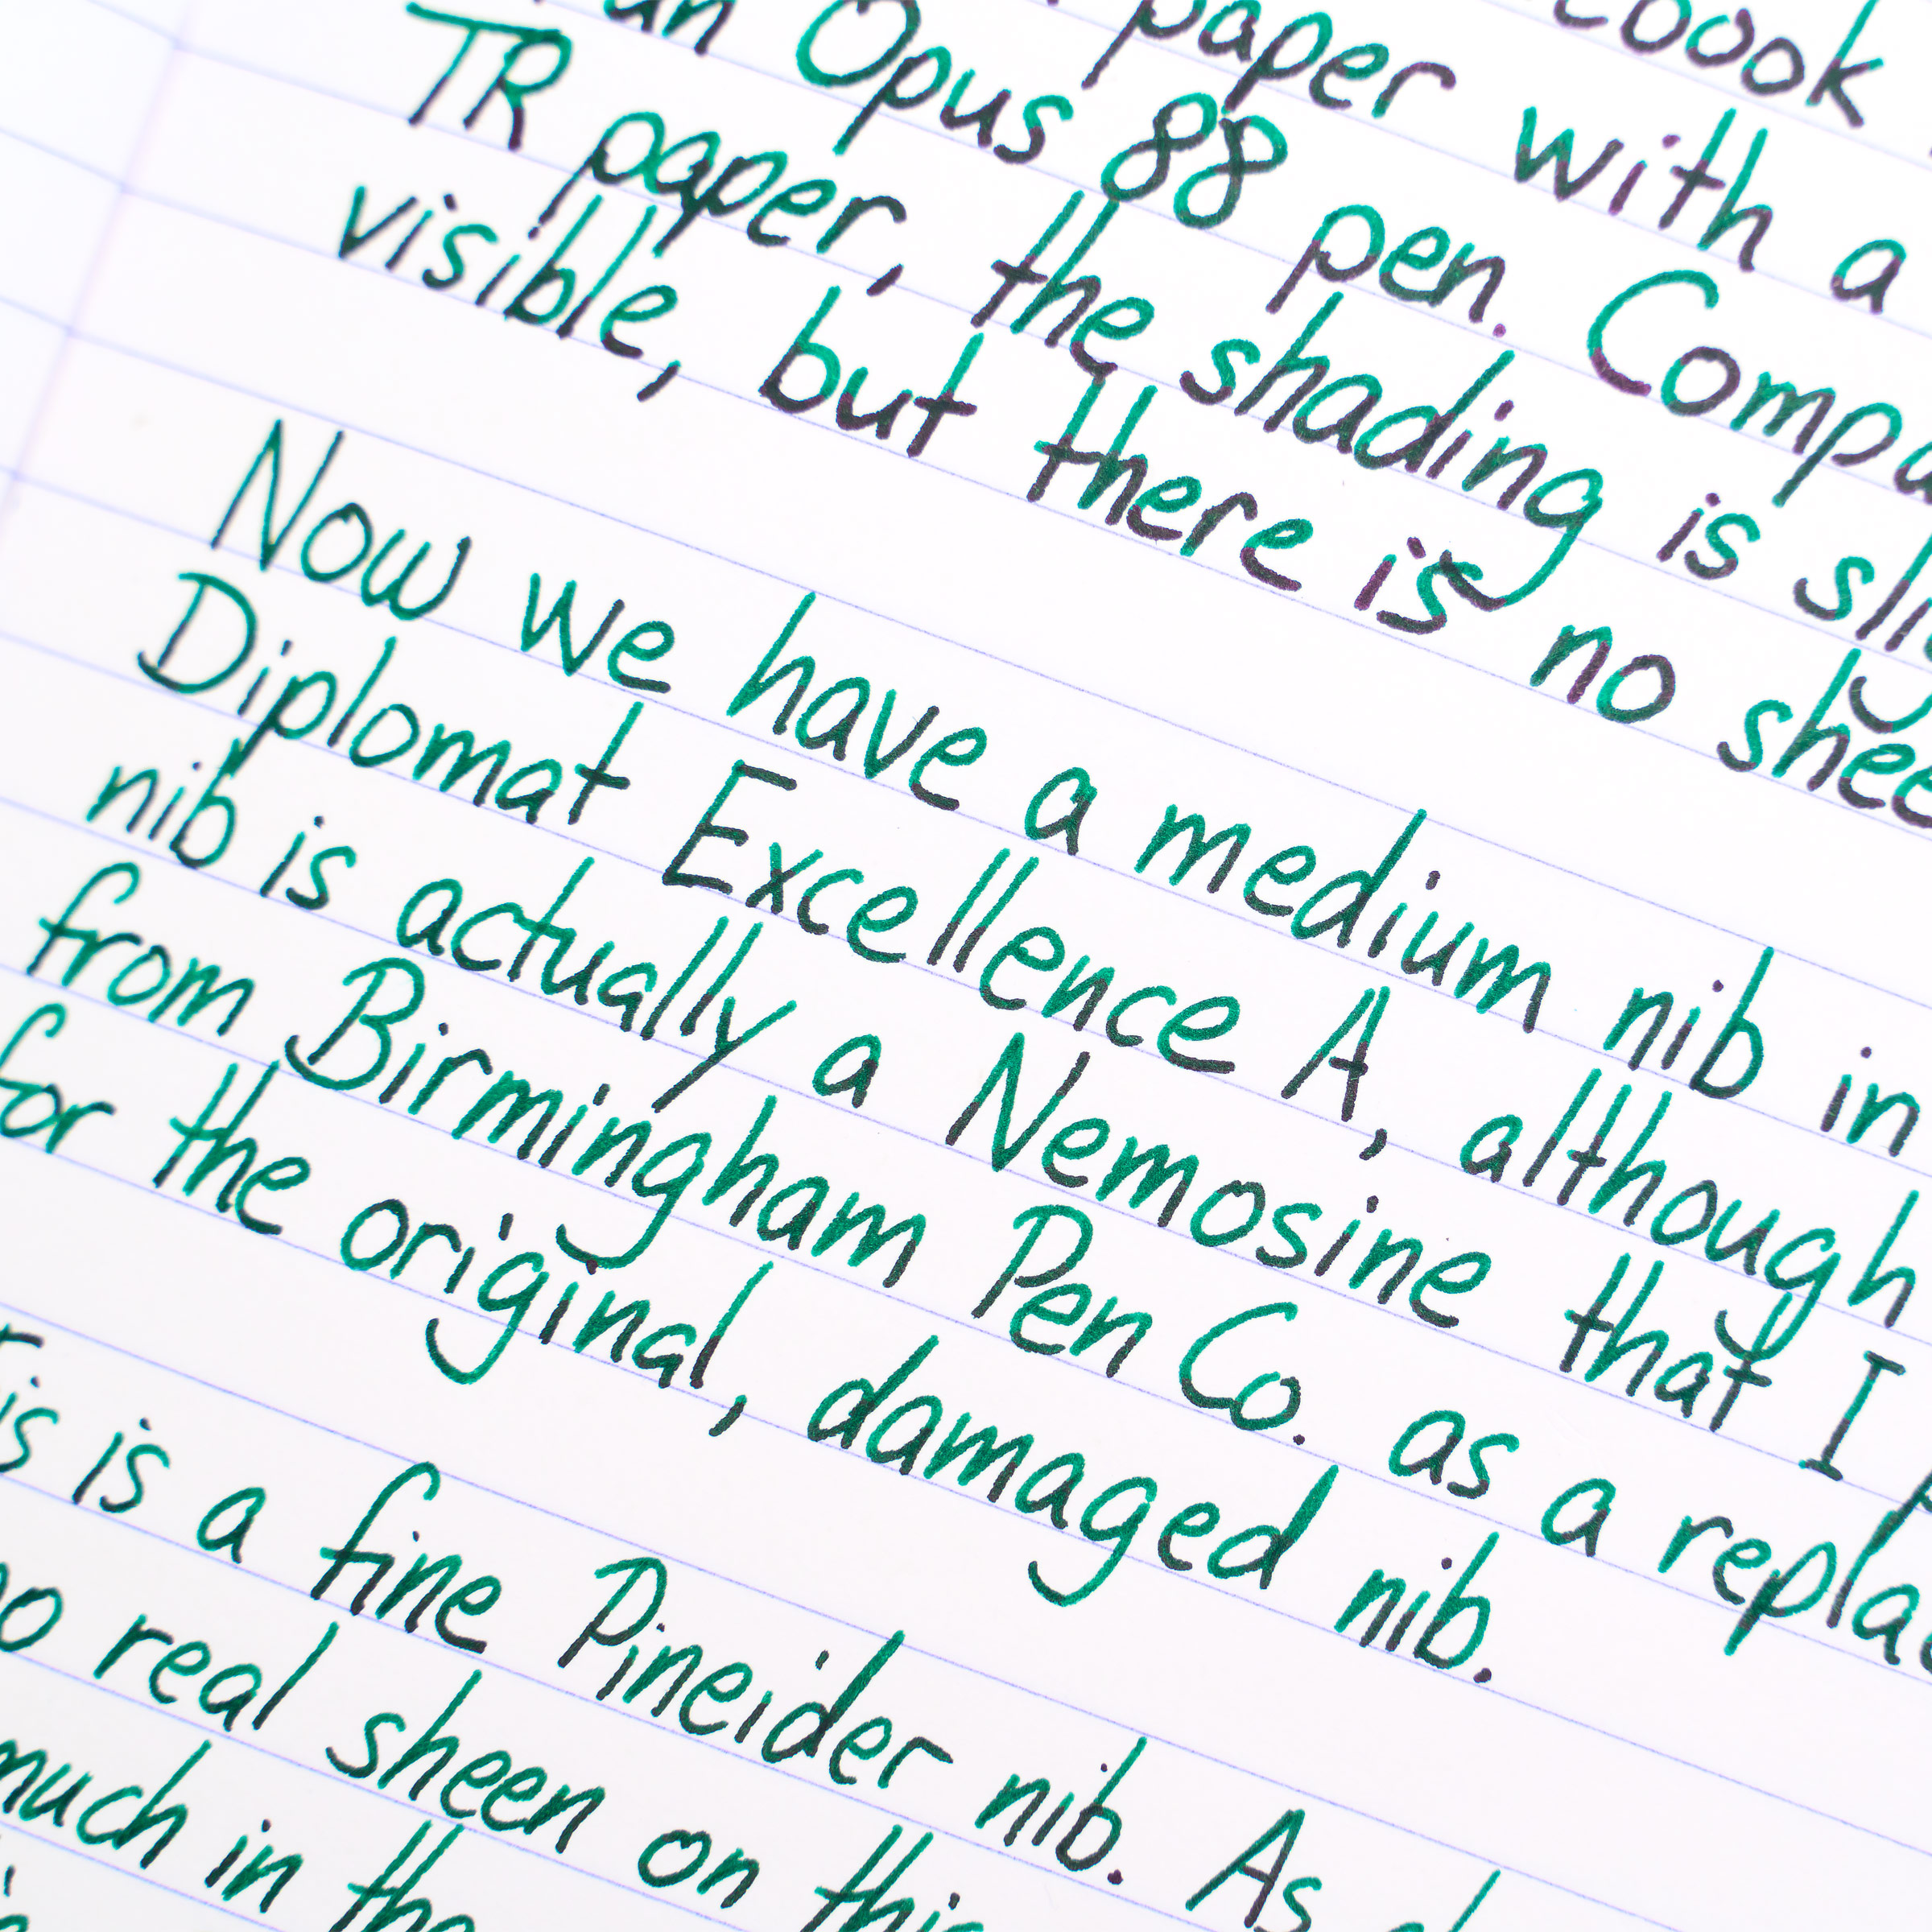 paper with a
an Opus 88 pen. Compa
TR paper, the shading is sli
visible, but there is no shee
Now we have a medium nib in
Diplomat Excellence A, although
nib is actually a Nemosine that I
from Birmingham Pen Co. as a replac
for the original, damaged nib.
is is a fine Pineider nib. As
no real sheen on this
much in the